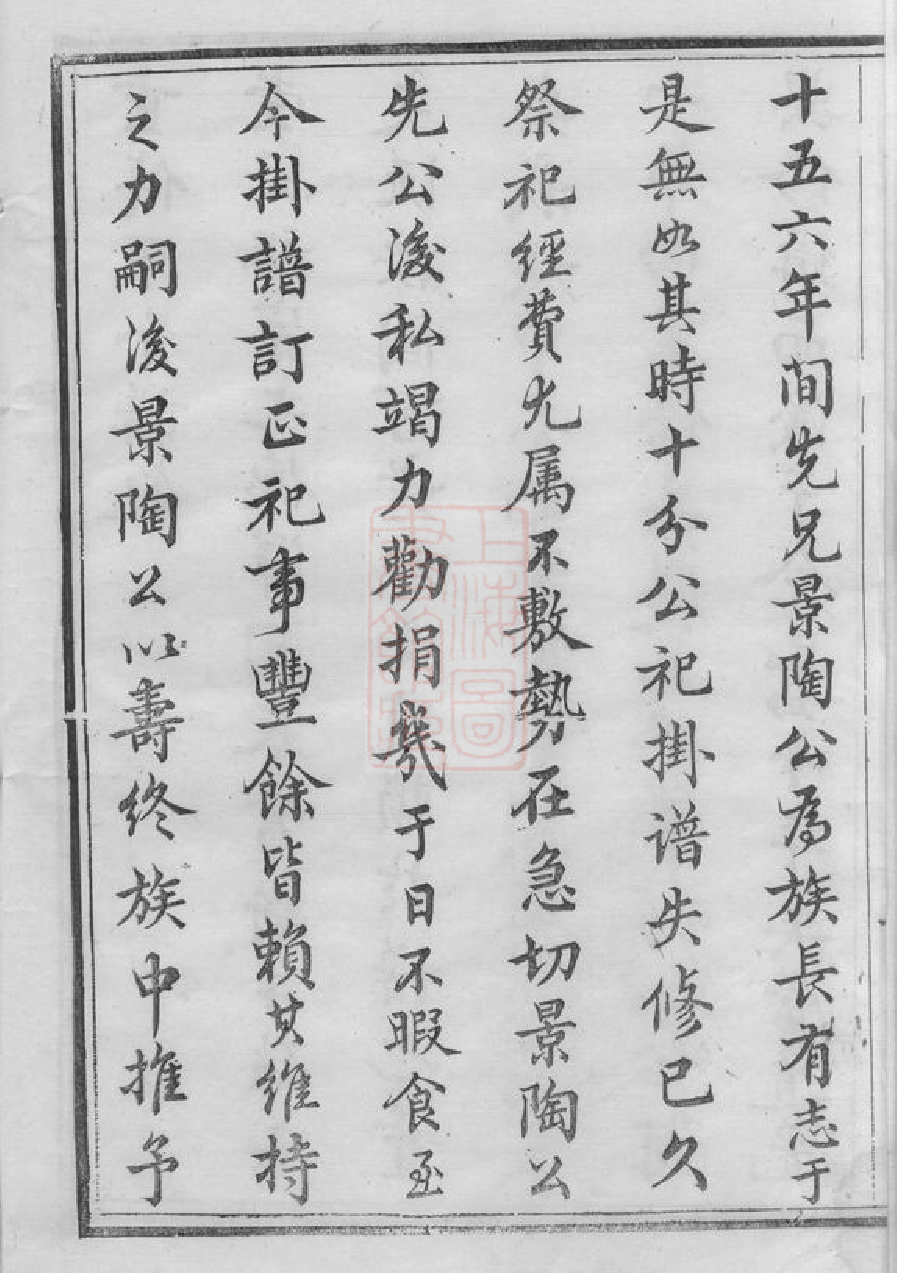 十五六年间先兄景陶公為族長有志于
是無如其時十分公祀掛谱失修已久
祭祀經費尤属不敷勢在急切景陶公
先公後私竭力勸捐幾于日不暇食至
今掛譜訂正祀事豐餘皆賴其維持
之力嗣後景陶公以壽终族中推予
上海圖書館藏